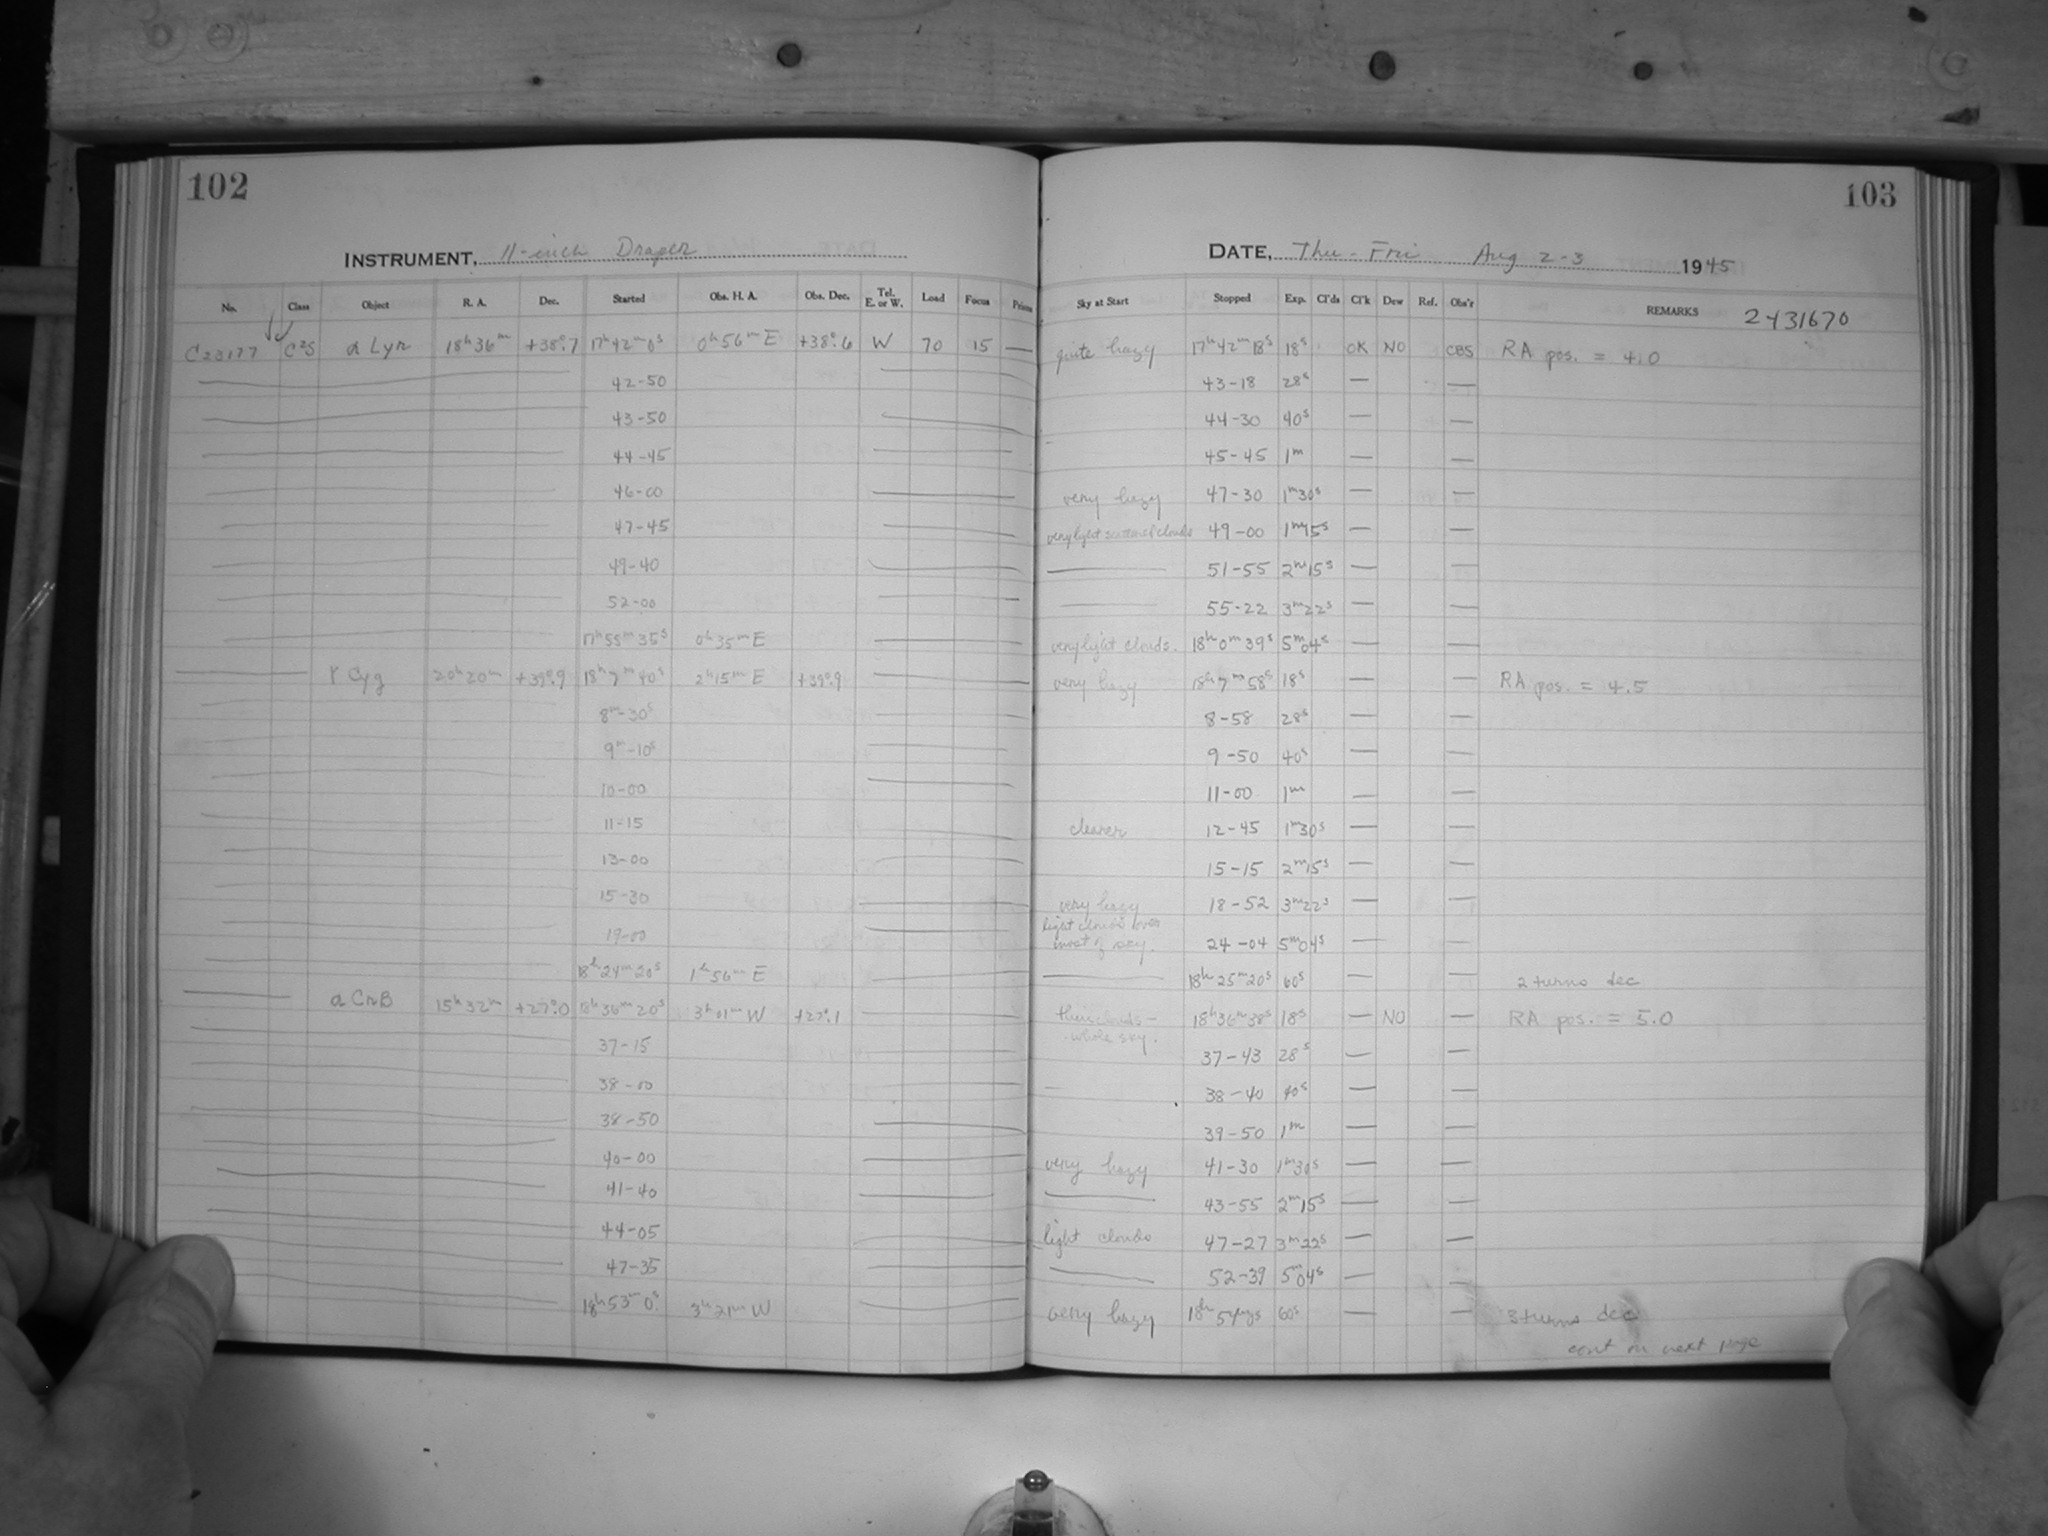 102
INSTRUMENT, 11-inch Draper
No. Class Object R. A. Dec. Started Obs. H. A. Obs. Dec. Tel. E. or W. Load Focus Prism
C23177 C2S α Lyr 18h36m +38°.7 17h42m0s 0h56mE +38°.6 W 70 15 —
42-50
43-50
44-45
46-00
47-45
49-40
52-00
17h55m35s 0h35mE
γ Cyg 20h20m +39°.9 18h7m40s 2h15mE +39°.9
8m-30s
9m-10s
10-00
11-15
13-00
15-30
19-00
18h24m20s 1h56mE
α CrB 15h32m +27°.0 18h36m20s 3h01mW +27°.1
37-15
38-00
38-50
40-00
41-40
44-05
47-35
18h53m0s 3h21mW
103
DATE, Thu-Fri Aug 2-3 1945
Sky at Start Stopped Exp. Cl'ds Cl'k Dew Ref. Obs'r REMARKS 2431670
quite hazy 17h42m18s 18s OK NO CBS RA pos. = 4.0
43-18 28s — —
44-30 40s — —
45-45 1m — —
very hazy 47-30 1m30s — —
very light scattered clouds 49-00 1m15s — —
— 51-55 2m15s — —
— 55-22 3m22s — —
very light clouds. 18h0m39s 5m04s — —
very hazy 18h7m58s 18s — — RA pos. = 4.5
8-58 28s — —
9-50 40s — —
11-00 1m — —
clearer 12-45 1m30s — —
15-15 2m15s — —
very hazy 18-52 3m22s — —
light clouds over
most of sky. 24-04 5m04s — —
— 18h25m20s 60s — — 2 turns dec
thin clouds - 18h36m38s 18s — NO — RA pos. = 5.0
whole sky.
37-43 28s — —
— 38-40 40s — —
39-50 1m — —
very hazy 41-30 1m30s — —
— 43-55 2m15s — —
light clouds 47-27 3m22s — —
— 52-39 5m04s — —
very hazy 60s — — 3 turns dec
cont on next page